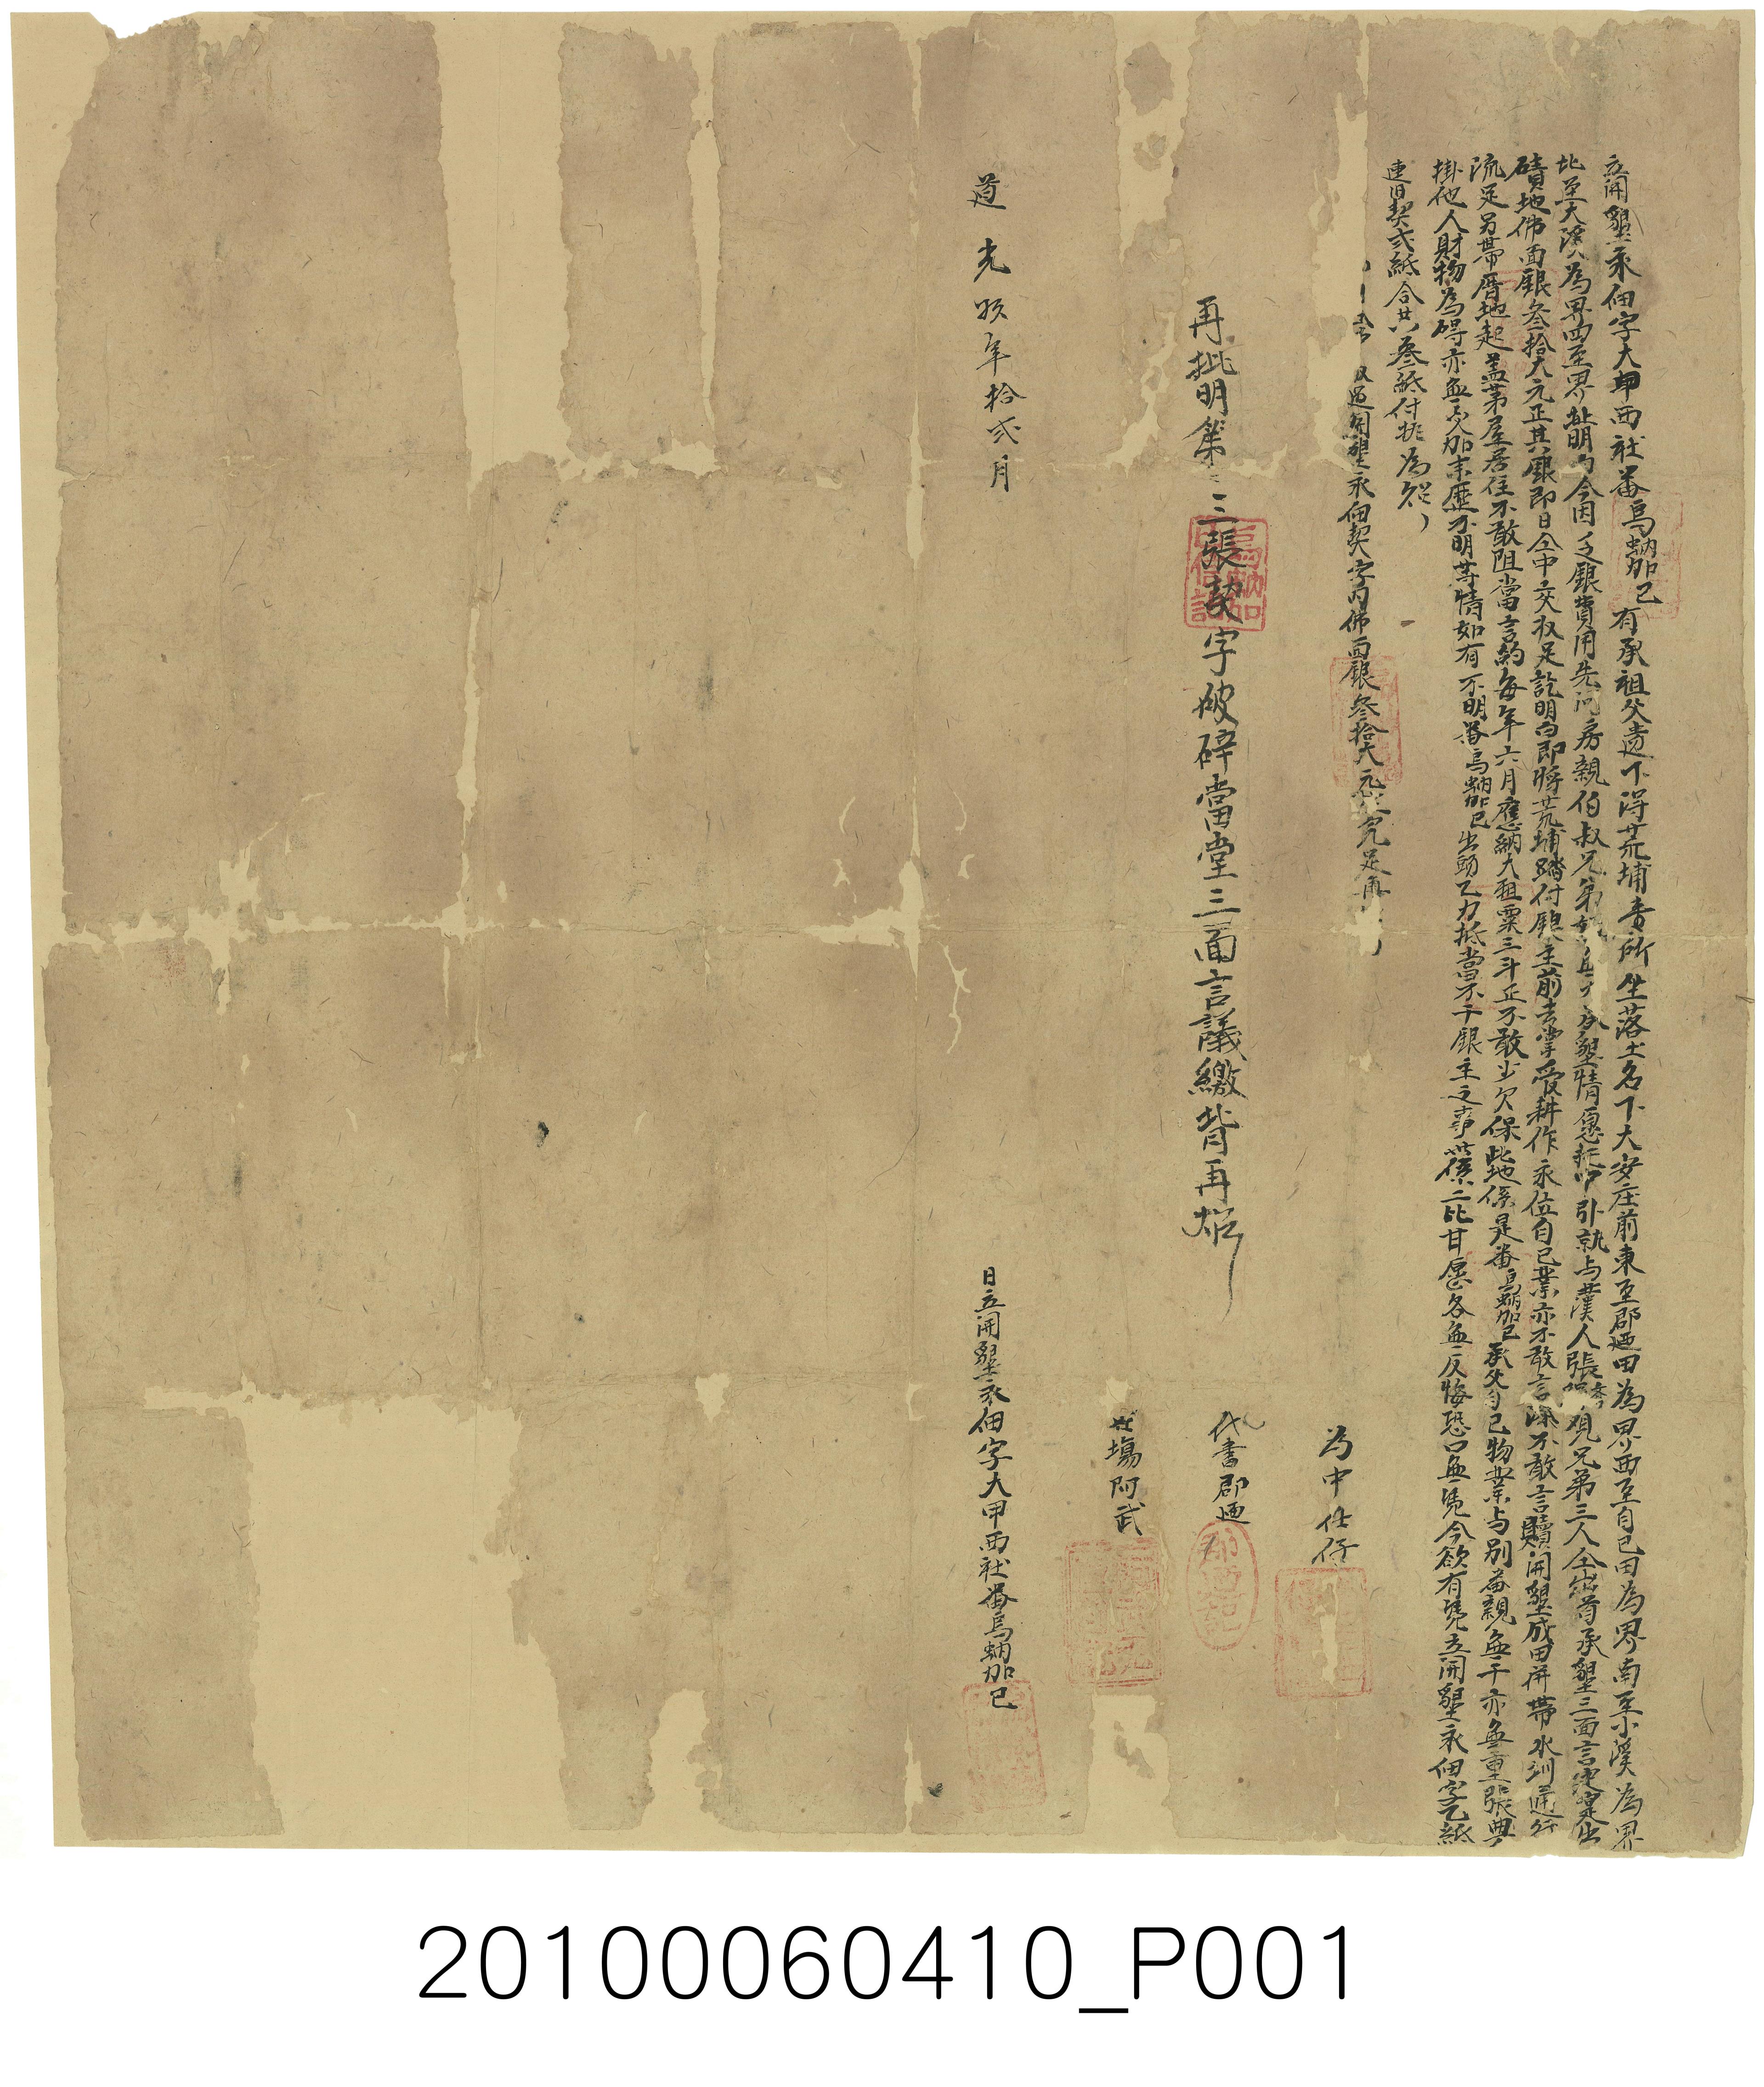 立開墾永佃字大甲西社番烏蚋加己有承祖父遺下得荒埔壹所坐落土名下大安庄前東至郡廼田為界西至自己田為界南至小溪為界
北至大溪為界四至界址明白今因乏銀費用先問房親伯叔兄弟承墾情愿托中引就与漢人張觀兄弟三人仝出首承墾三面言定是出
磧地佛面銀叁拾大元正其銀即日仝中交收足訖明白即將荒埔踏付銀主前去掌管耕作永位自己業亦不敢言添不敢言贖開墾成田併帶水圳通行
流足另帶厝地起盖茅屋居住不敢阻當言約每年六月應納大租粟三斗正不敢少欠保此地係是番烏蚋加己承父自己物業与別番親無干亦無重張典
掛他人財物為碍亦無交加來歷不明等情如有不明番烏蚋加己出頭乙力抵當不干銀主之事此係二比甘愿各無反悔恐口無凴今欲有凴立開墾永佃字乙紙
連旧契弍紙合共叁紙付執為炤
收過開墾永佃契字內佛面銀叁拾大元正完足再
為中任仔
再批明第三張契字破碎當堂三面言議繳背再炤
代書郡廼
在場阿武
道光 年拾弍月
日立開墾永佃字大甲西社番烏蚋加己
20100060410_P001